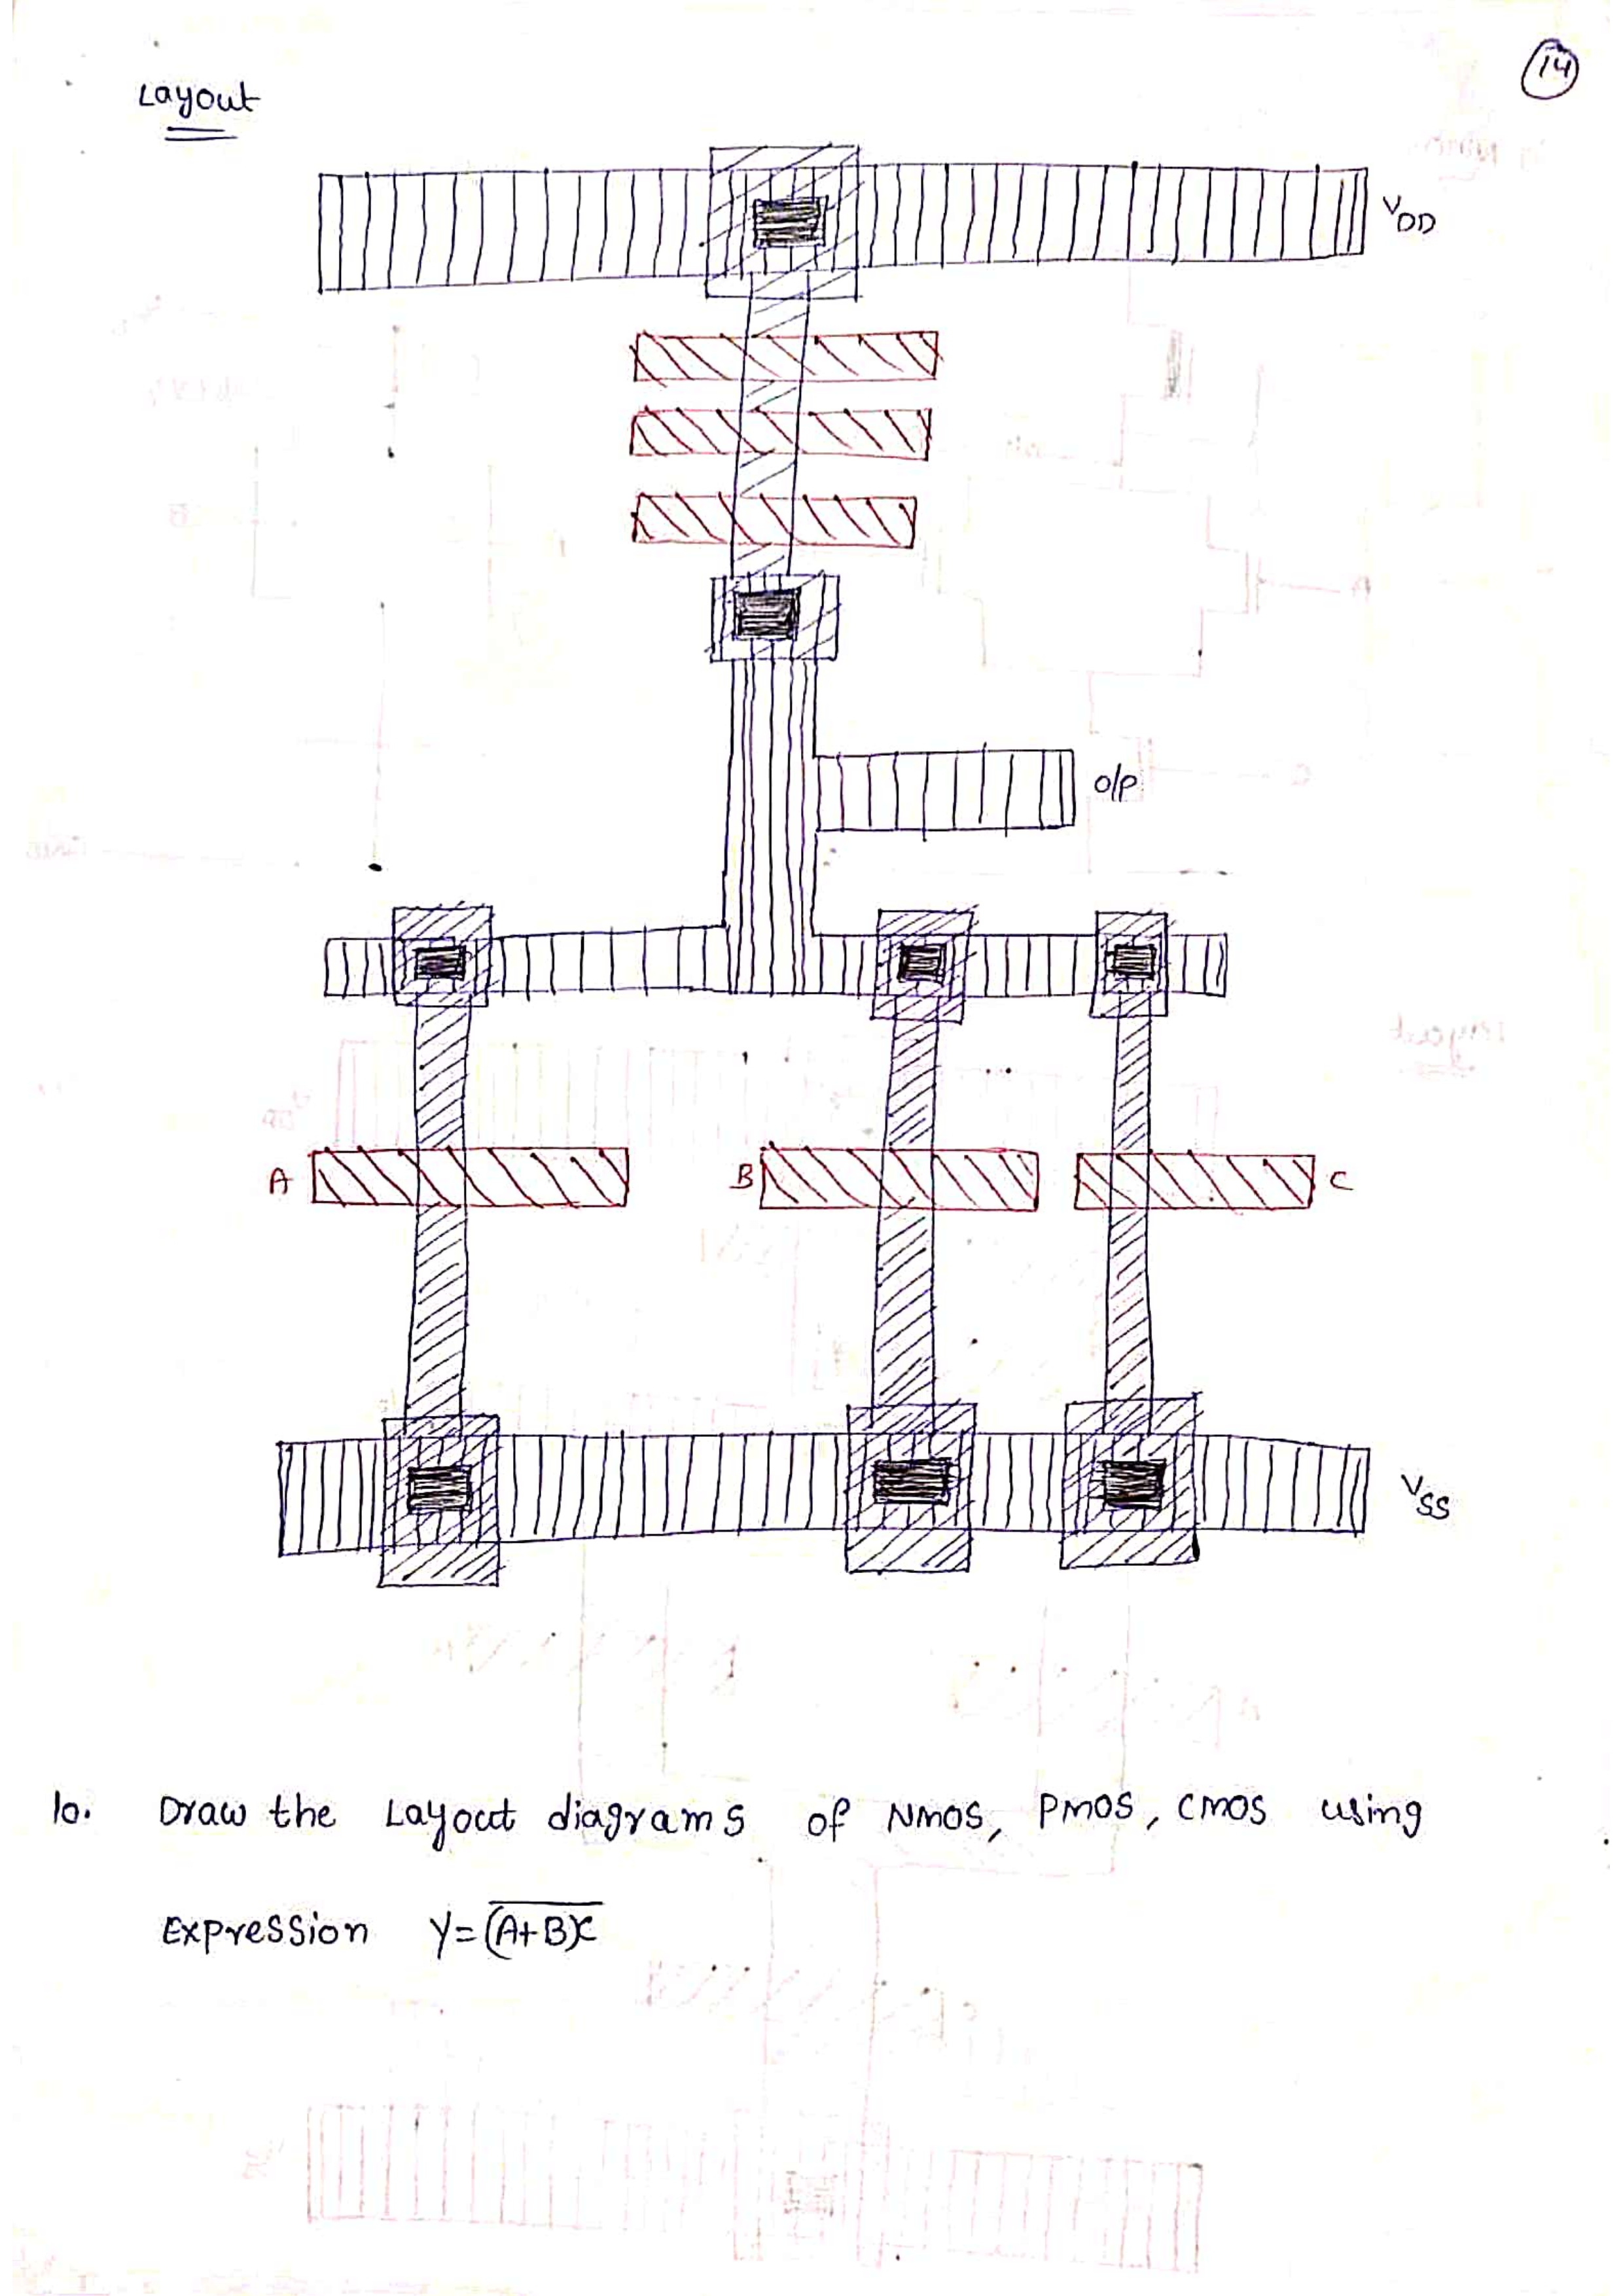 14
Layout
VDD
o/p
A
B
C
VSS
10. Draw the Layout diagrams of NMOS, PMOS, CMOS using
Expression Y=(A+B)C